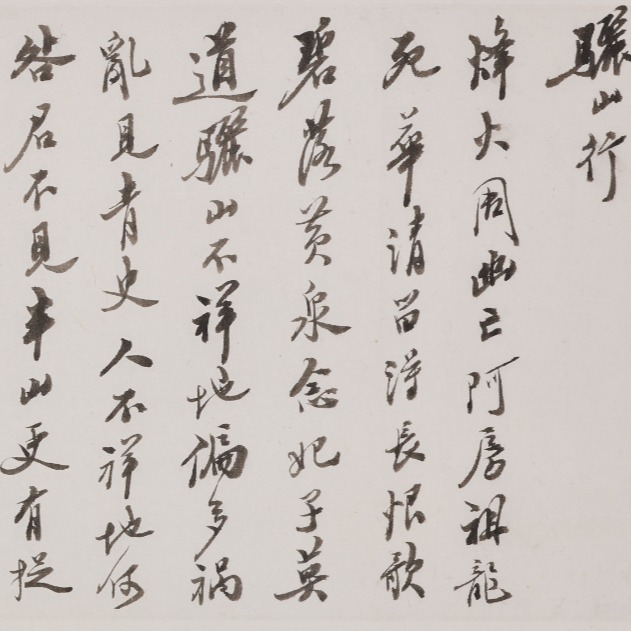 驪山行
烽火周幽亡阿房祖龍
死華清留得長恨歌
碧落黃泉念妃子莫
道驪山不祥地偏多禍
亂見青史人不祥地何
咎君不見半山更有捉